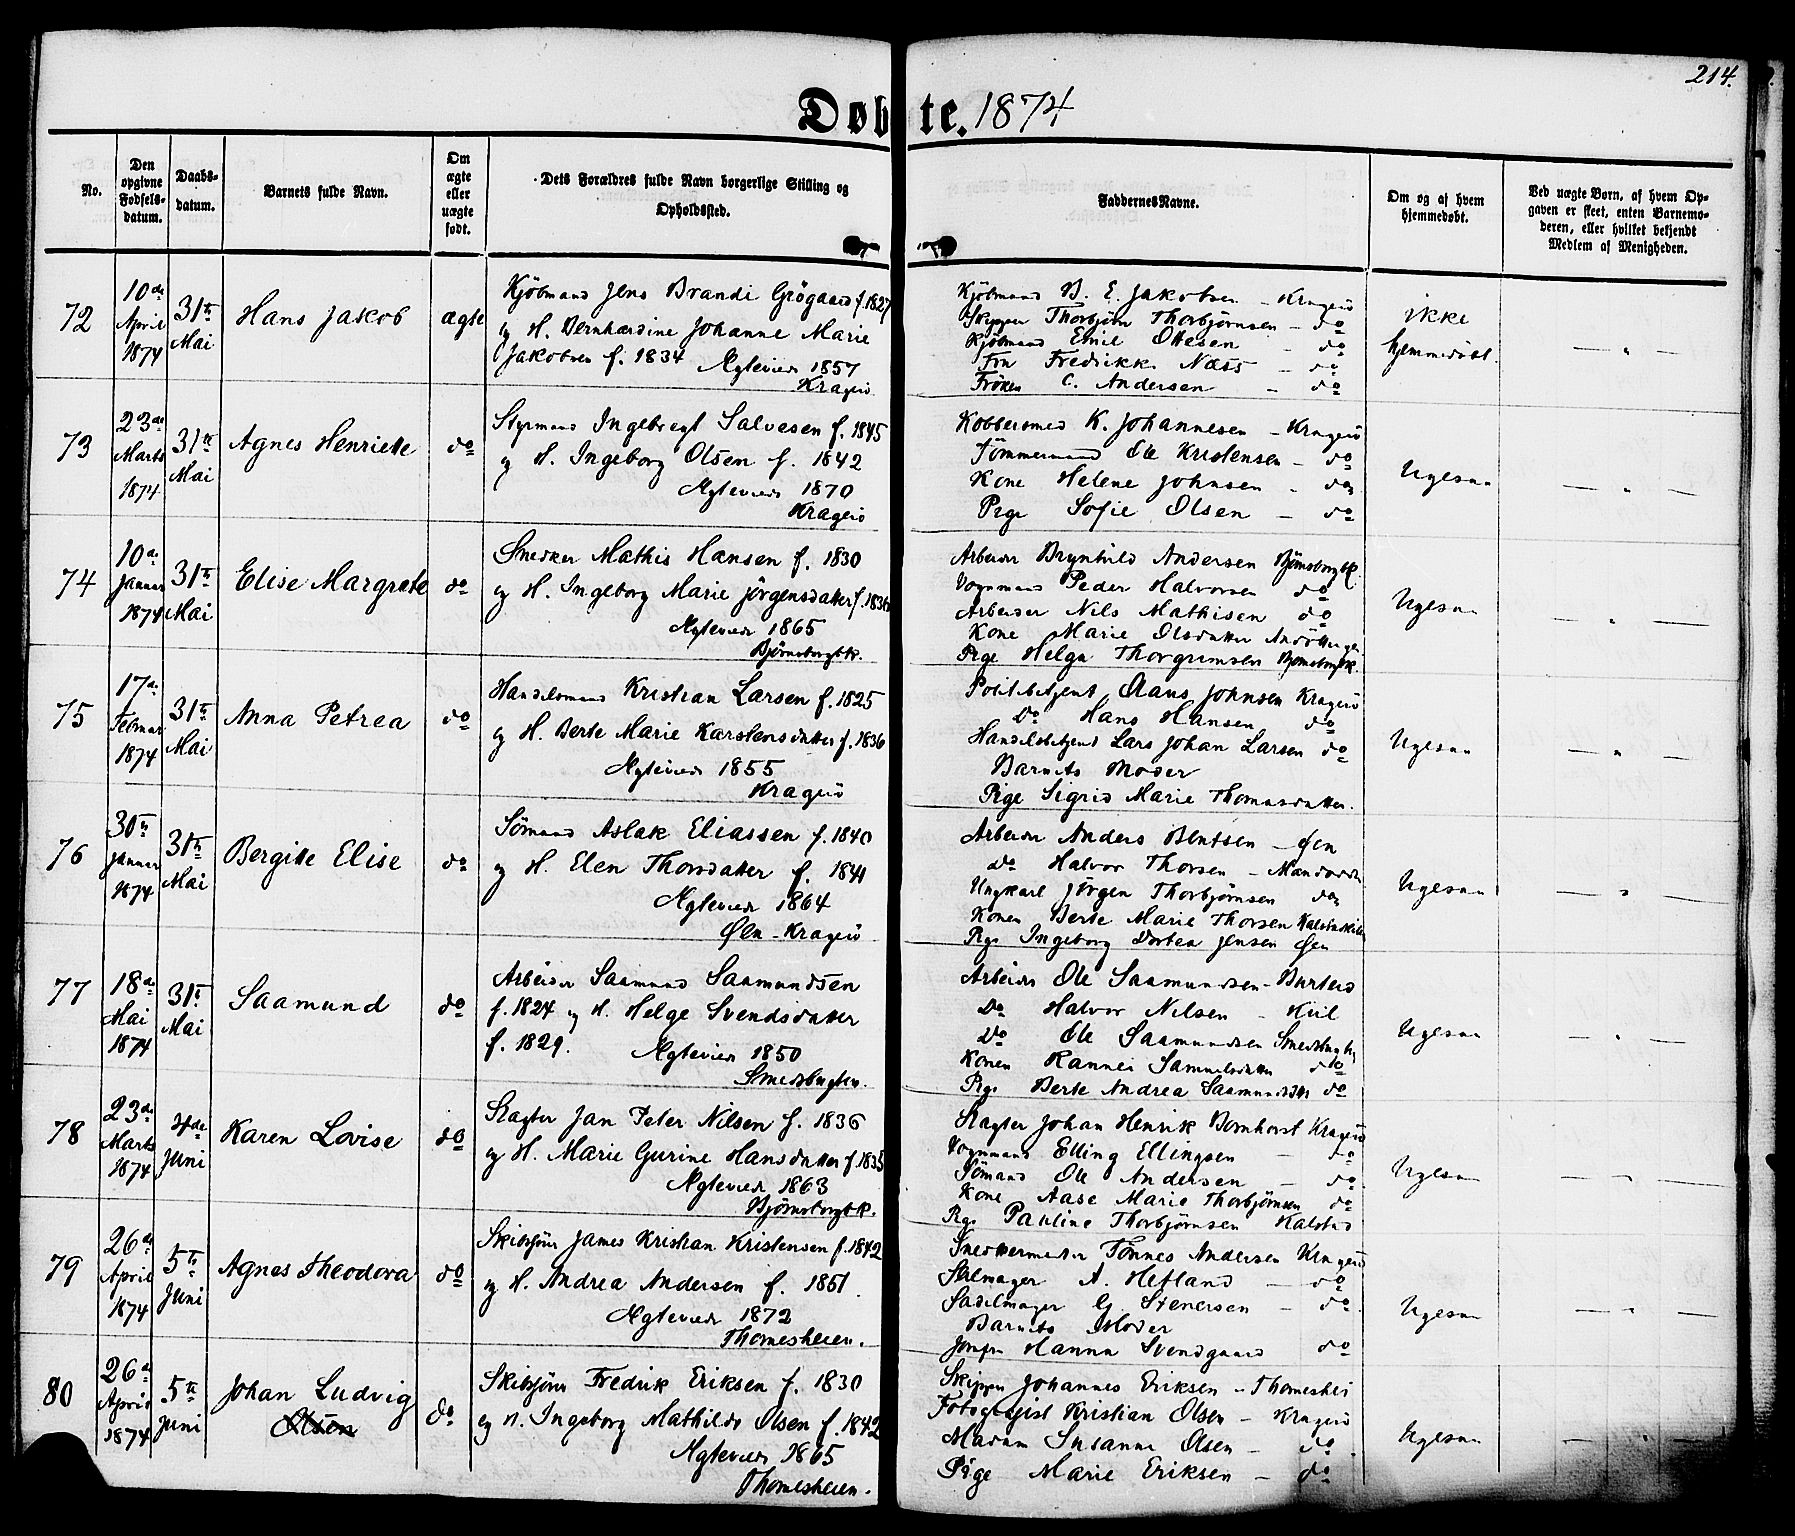 214.
Døbte. 1874
No.
Den opgivne Fødsels-datum.
Daabs-datum.
Barnets fulde Navn.
Om ægte eller uægte født.
Dets Forældres fulde Navn borgerlige Stilling og Opholdssted.
Faddernes Navne.
Om og af hvem hjemmedøbt.
Ved uægte Børn, af hvem Op-gaven er skeet, enten Barnemo-deren, eller hvilket bekjendt Medlem af Menigheden.
72
10de April 1874
31te Mai
Hans Jakob
ægte
Kjöbmand Jens Brandi Grögaard f. 1827
og H. Bernhardine Johanne Marie
Jakobsen f. 1834 Ægteviede 1857
Kragerö
Kjöbmand B. E. Jakobsen - Kragerö
Skipper Thorbjörn Thorbjörnsen - do
Kjöbmand Emil Ottesen - do
Fru Fredrikke Næss - do
Fröken C. Andersen - do
ikke
hjemmedöbt.
— " —
73
23de Marts 1874
31te Mai
Agnes Henriette
do
Styrmand Ingebregt Salvesen f. 1845
og H. Ingeborg Olsen f. 1842
Ægteviede 1870
Kragerö
Kobbersmed K. Johannesen - Kragerö
Tömmermand Ole Kristensen - do
Kone Helene Johnsen - do
Pige Sofie Olsen - do
Ligesaa
— " —
74
10de Januar 1874
31te Mai
Elise Margrete
do
Snedker Mathis Hansen f. 1830
og H. Ingeborg Marie Jörgensdatter f. 1836
Ægteviede 1865
Björnsborgbk.
Arbeider Brynhild Andersen Björnsborgbk.
Vognmand Peder Halvorsen do
Arbeider Nils Mathisen do
Kone Marie Olsdatter
Pige Helga Thorgrimsen Björnsborgbk.
Ligesaa
— " —
75
17de Februar 1874
31te Mai
Anna Petrea
do
Handelsmand Kristian Larsen f. 1825
og H. Berte Marie Karstensdatter f. 1836
Ægteviede 1855
Kragerö
Politibetjent Claus Johnsen Kragerö
Do Hans Hansen do
Handelsbetjent Lars Johan Larsen do
Barnets Moder
Pige Sigrid Marie Thomasdatter.
Ligesaa
— " —
76
30te Januar 1874
31te Mai
Bergitte Elise
do
Sömand Aslak Eliassen f. 1840
og H. Elen Thorsdatter f. 1841
Ægteviede 1864
Øen - Kragerö
Arbeider Anders Bentsen - Øen
do Halvor Thorsen -
Ungkarl Jørgen Thorbjørnsen do
Konen Berte Marie Thorsen
Pige Ingeborg Dortea Jensen Øen
Ligesaa
— " —
77
18de Mai 1874
31te Mai
Saamund
do
Arbeider Saamund Saamundsen
f. 1824 og H. Helge Svendsdatter
f. 1829. Ægteviede 1850
Smedsbugten.
Arbeider Ole Saamundsen -
Do Halvor Nilsen - Kiil
Do Ole Saamundsen Smedsbugten
Konen Rannei Samuelsdatter do
Pige Berte Andrea Saamundsdtr do
Ligesaa
— " —
78
23de Marts 1874
4de Juni
Karen Lovise
do
Slagter Jan Peter Nilsen f. 1836
og H. Marie Gurine Hansdatter f. 1835
Ægteviede 1863
Björnsborgbk.
Slagter Johan Henrik Bornhorst Kragerö
Vognmand Elling Ellingsen - do
Sömand Ole Andersen - do
Kone Aase Marie Thorbjørnsen do
Pige Pauline Thorbjørnsen Kalstad
Ligesaa
— " —
79
26de April 1874
5te Juni
Agnes Theodora
do
Skibsförer James Kristian Kristensen f. 1842
og H. Andrea Andersen f. 1851.
Ægteviede 1872
Thomesheien.
Snedkermester Tönnes Andersen Kragerö
Seilmager A. Hefland - do
Sadelmager G. Stenersen - do
Barnets Moder
Jomfru Hanna Svendgaard do
Ligesaa
— " —
80
26de April 1874
5te Juni
Johan Ludvig
Olsen
do
Skibsförer Fredrik Eriksen f. 1830
og H. Ingeborg Mathilde Olsen f. 1842
Ægteviede 1865
Thomesheien.
Skipper Johannes Eriksen - Thomeshei
Fotografist Kristian Olsen - Kragerö
Madam Susanne Olsen - do
Pige Marie Eriksen - do
Ligesaa
— " —